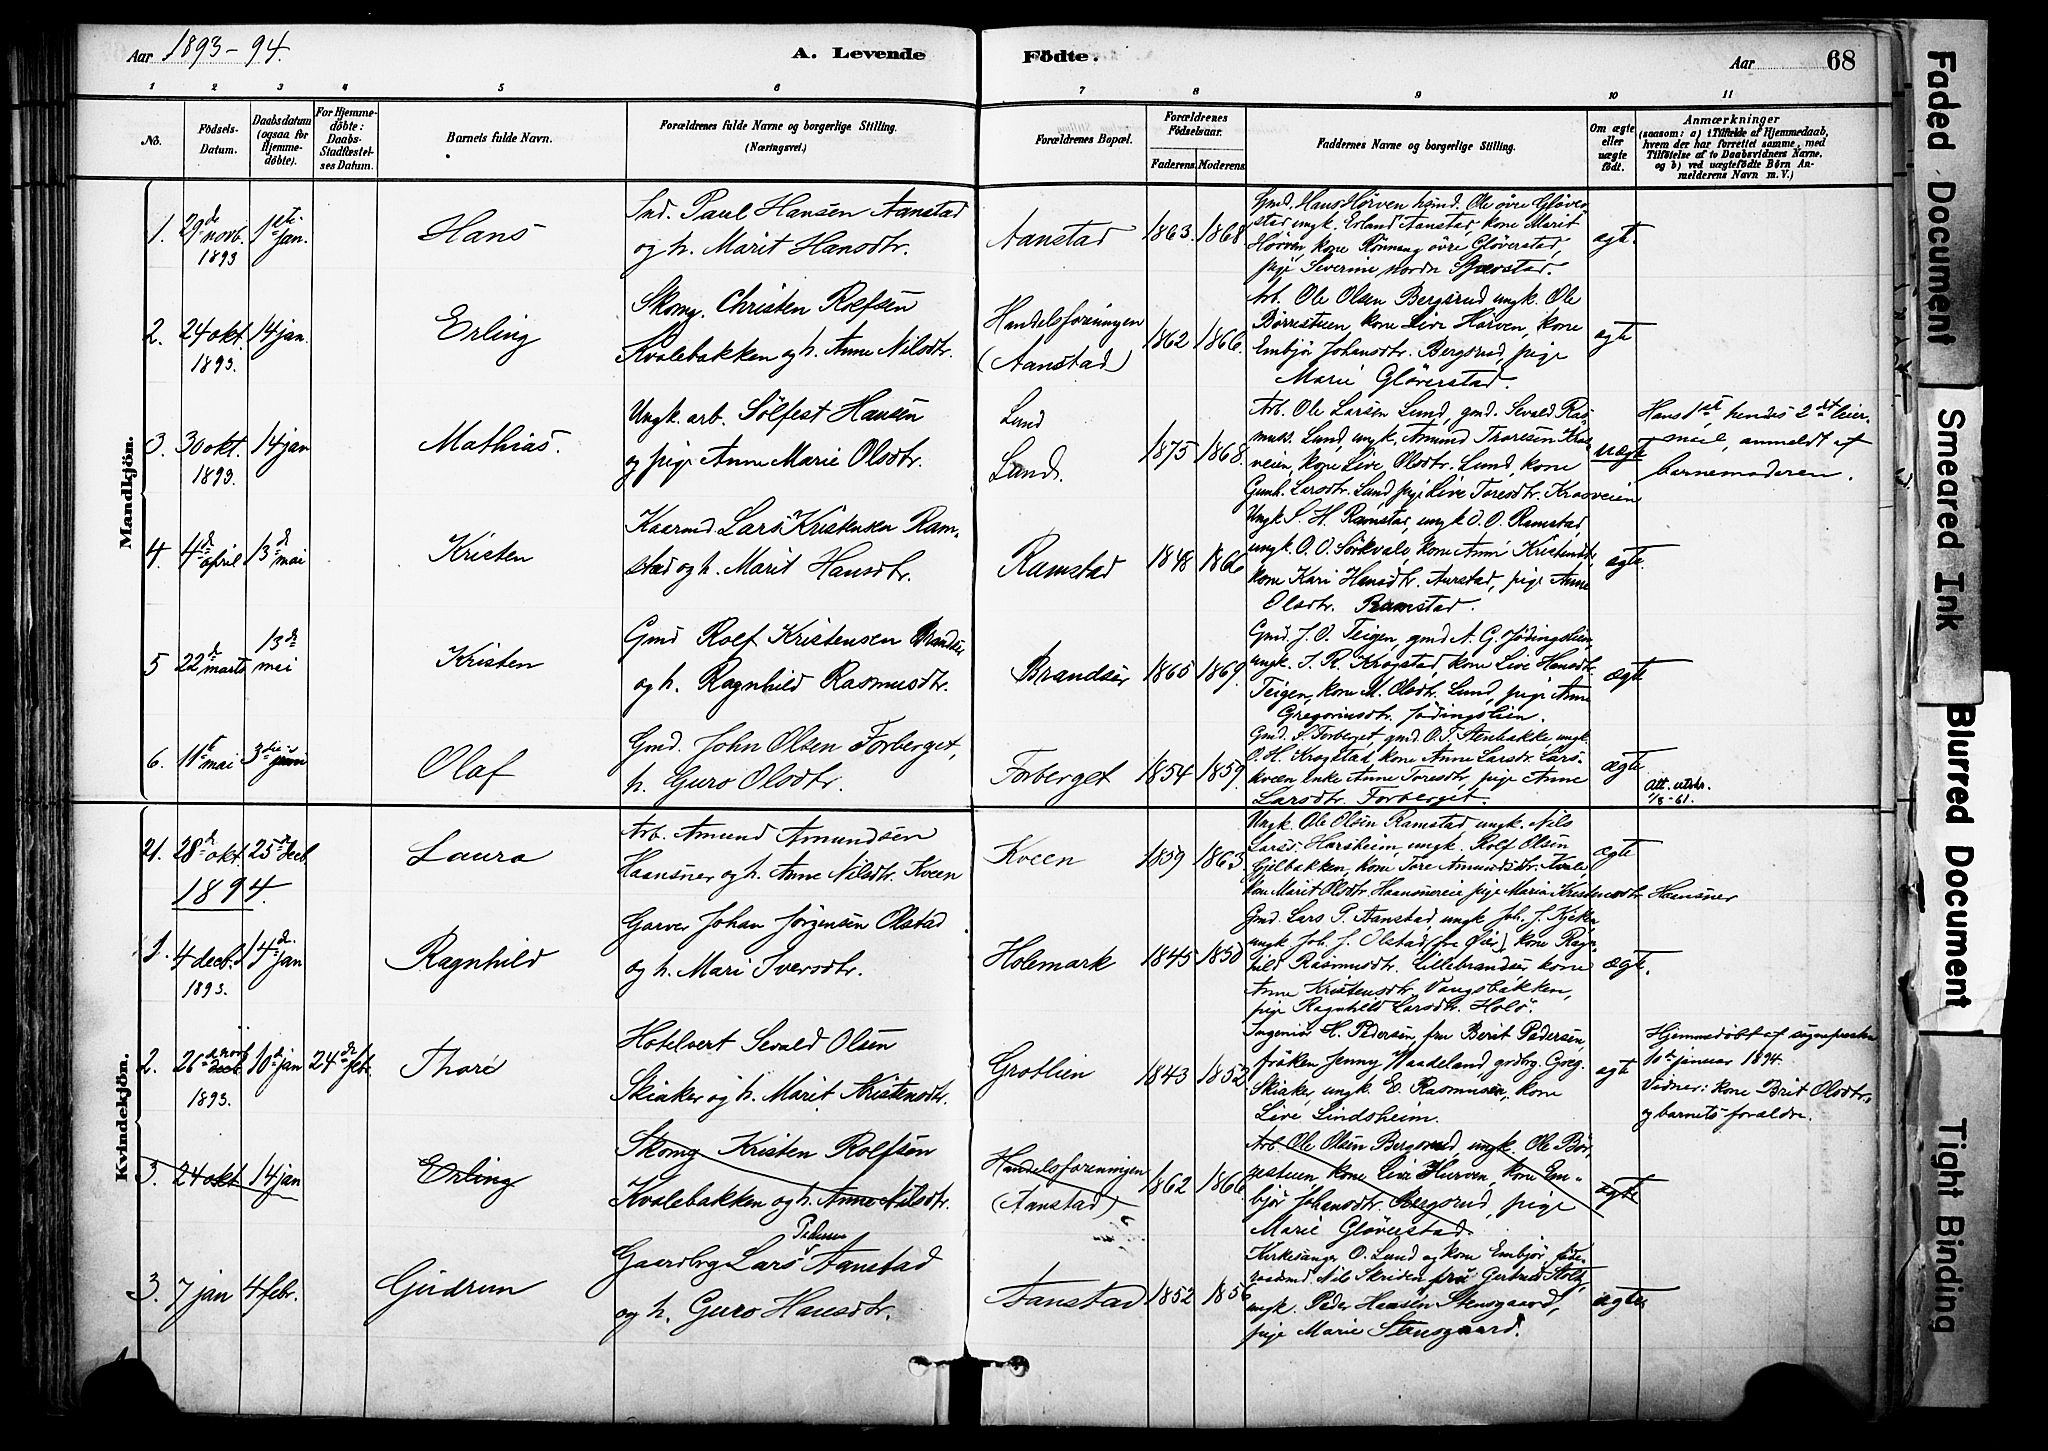 Aar 1893-94.
A. Levende
Födte.
Aar
68
1 2 3 4 5 6 7 8 9 10 11
No.
Födsels-Datum.
Daabsdatum (ogsaa for Hjemme-döbte).
For Hjemme-döbte: Daabs-Stadfæstel-ses Datum.
Barnets fulde Navn.
Forældrenes fulde Navne og borgerlige Stilling.
(Næringsvei.)
Forældrenes Bopæl.
Forældrenes Födselsaar.
Faderens. Moderens.
Faddernes Navne og borgerlige Stilling.
Om ægte eller uægte födt.
Anmærkninger
(saasom: a) i Tilfælde af Hjemmedaab, hvem der har forrettet samme, med Tilföielse af to Daabsvidners Navne, og b) ved uægtefödte Börn An-melderens Navn m. V.)
Mandkjön.
1. 29de novb. 1893 1ste jan.
Hans
Snd. Paul Hansen Aanstad
og h. Marit Hansdtr.
Aanstad 1863. 1868
Gmd. Hans Hörven hsmd. Ole övre Glöver-
stad ungk. Erland Aanstad, kone Marit
Hörven, kone Rönnaug övre Glöverstad,
pige Severine nordre
ægt.
2. 24 okt. 1893. 14 jan.
Erling
Skomg. Christen Rolfsen
Kvalebakken og h. Anne Nilsdtr.
Handelsforeningen
(Aanstad)
1862 1866.
Arb. Ole Olsen Bergsrud ungk. Ole
Börrestuen, kone Live Hörven, kone
Embjör Johansdtr. Bergsrud, pige
Marie Glöverstad.
ægt
3. 30 okt. 1893. 14 jan
Mathias.
Ungk. arb. Sölfest Hansen
og pige Anne Marie Olsdtr.
Lund
Lund.
1875 1868.
Arb. Ole Larsen Lund, gmd. Sevald Ras-
muss. Lund, ungk. Amund Thoresen Kras-
veien, kone Live Olsdtr. Lund, kone
Gunh. Larsdtr. Lund pige Live Toresdtr. Krasveien
uægt
Hans 1ste, hendes 2det leier-
meil, anmeldt af
barnemoderen.
4. 4de april 13de mai
Kristen
Kaarmd Lars Kristensen Ram-
stad og h. Marit Hansdtr.
Ramstad 1848 1866
Ungk. S. H. Ramstad, ungk. O. O. Ramstad,
ungk. O. O. Sörkvale, kone Anne Kristensdtr.
kone Kari Hansdtr. Aurstad, pige Anne
Olsdtr. Ramstad.
ægte
5 22de marts 13de mai
Kristen
Gmd Rolf Kristensen Brandsær
og h. Ragnhild Rasmusdtr.
Brandsær 1865 1869.
Gmd. J. O. Teigen, gmd A. G. Jödingslien,
ungk. I. R. Krogstad, kone Live Hansdtr.
Teigen, kone M. Olsdtr. Lund, pige Anne
Gregoriusdtr. Jödingslien.
ægte
6. 11te mai 3die juni
Olaf
Gmd. John Olsen Forberget,
h. Guro Olsdtr.
Forberget 1854 1859.
Gmd. S. Forberget, gmd. O. T. Stenbakke ungk.
O. H. Krogstad, kone Anne Larsdr. Lars-
kveen Enke Anne Toresdtr, pige Anne
Larsdtr. Forberget.
ægte
Att. utstr.
1/8-61.
Kvindekjön.
21. 28de okt. 25de decb.
Laura
Arb. Amund Amundsen
Haansner og h. Anne Nilsdtr. Kveen
Kveen 1859 1863
Ungk. Ole Olsen Ramstad ungk. Nils
Larss. Harsheim, ungk. Rolf Olsen
Gjelbakken, kone Tore Amundsdtr. Kvale
kone Marit Olsdtr. Haansnereie pige Maria Kristensdtr Haansner
ægte
1894.
1. 4 decb. 1893. 14de jan
Ragnhild
Garver Johan Jörgensen Olstad
og h. Mari Iversdtr.
Holemark 1845 1850
Gmd. Lars P. Aanstad, ungk Joh. J.
ungk Joh. J. Olstad (fra Öier), kone Ragn-
hild Rasmusdtr. Lillebrandsær kone
Anne Kristensdtr. Vangsbakken,
pige Ragnhild Larsdtr. Holö.
ægte.
2. 26de novb decb. 1893. 10de jan 24de febr.
Thore
Hotelvert Sevald Olsen
Skiaker og h. Marit Kristensdtr.
Grotlien 1843 1852
Ingeniör H. Pedersen, fru Berit Pedersen,
fröken Jenny Waadeland grdbrg. Greg.
Skiaker, ungk. E. Rasmussen, kone
Live Lindsheim.
ægt
Hjemmedöbt af sognepresten
10de januar 1894.
Vidner: kone Brit Olsdtr.
og barnets forældre.
3. 24 okt 14 jan
Erling
Skomg Kristen Rolfsen
Kvalebakken og h. Anne Nilsdtr.
Handelsforeningen
(Aanstad)
1862 1866
Arb. Ole Olsen Bergsrud, ungk. Ole Bör-
restuen, kone Live Hurven, kone Em-
björ Johansdtr. Bergsrud, pige
Marie Glöverstad
ægte
3. 7 jan 4 febr.
Gudrun
Gaardbrg Lars Pedersen Aanstad
og h. Guro Hansdtr.
Aanstad 1852 1856
Kirkesanger O. Lund og kone Embjör, föde-
raadsmd. Nils Skriden fru Gertrud Stolt,
ungk. Peder Hansen Stensgaard,
pige Marie Stensgaard.
ægte
Faded Document
Smeared Ink
Blurred Document
Tight Binding